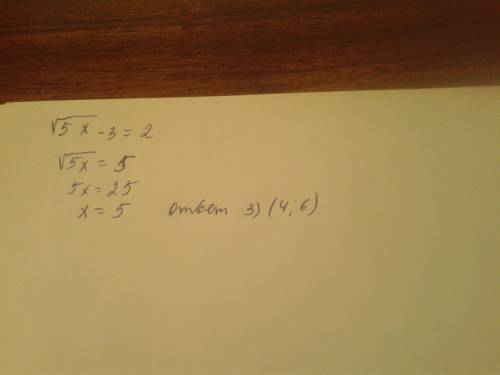 √5x - 3 = 2
√5x = 5
5x = 25
x = 5 ответ 3) (4; 6)